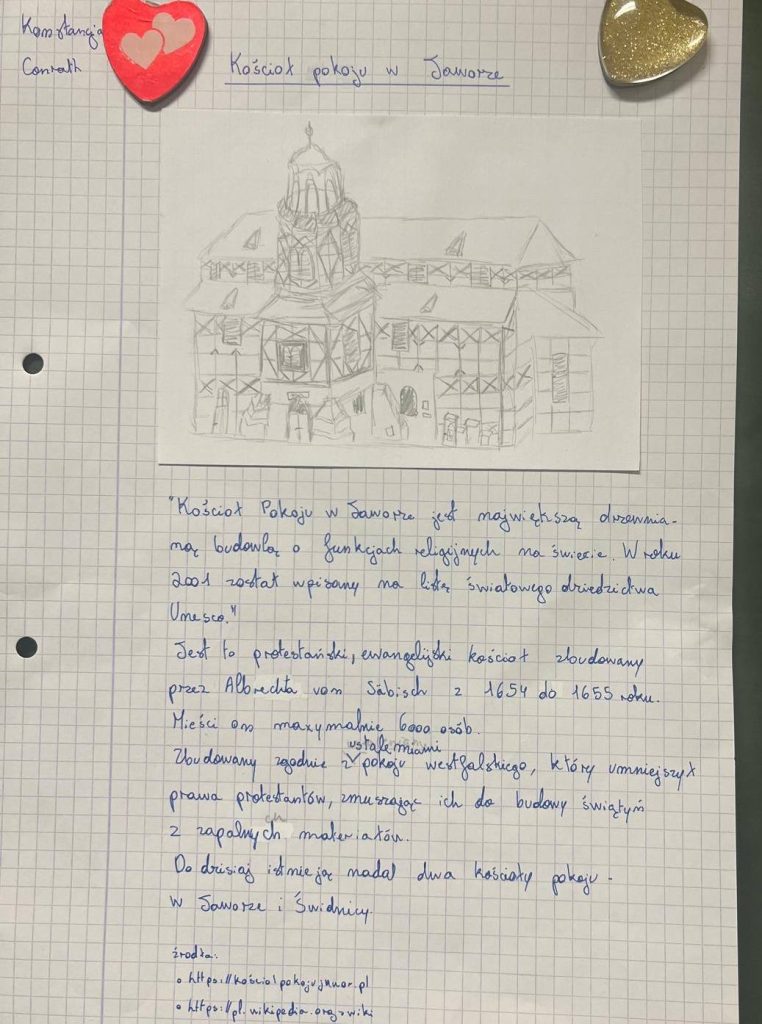 Konstancja
Conrath
Kościoł pokoju w Jaworze
"Kościoł Pokoju w Jaworze jest największą drzewnia-
ną budowlą o funkcjach religijnych na świecie. W roku
2001 został wpisany na listę światowego dziedzictwa
Unesco."
Jest to protestański, ewangelijski kościoł zbudowany
przez Albrechta von Säbisch z 1654 do 1655 roku.
Mieści on maxymalnie 6000 osób.
ustaleniami
Zbudowany zgodnie z pokoju westfalskiego, który umniejszył
prawa protestantów, zmuszając ich do budowy świątyń
z zapalnych materiałów.
Do dzisiaj istnieją nadal dwa kościoły pokoju -
w Jaworze i Świdnicy.
źródła:
• https://kościolpokojujawor.pl
• https://pl.wikipedia.org>wiki